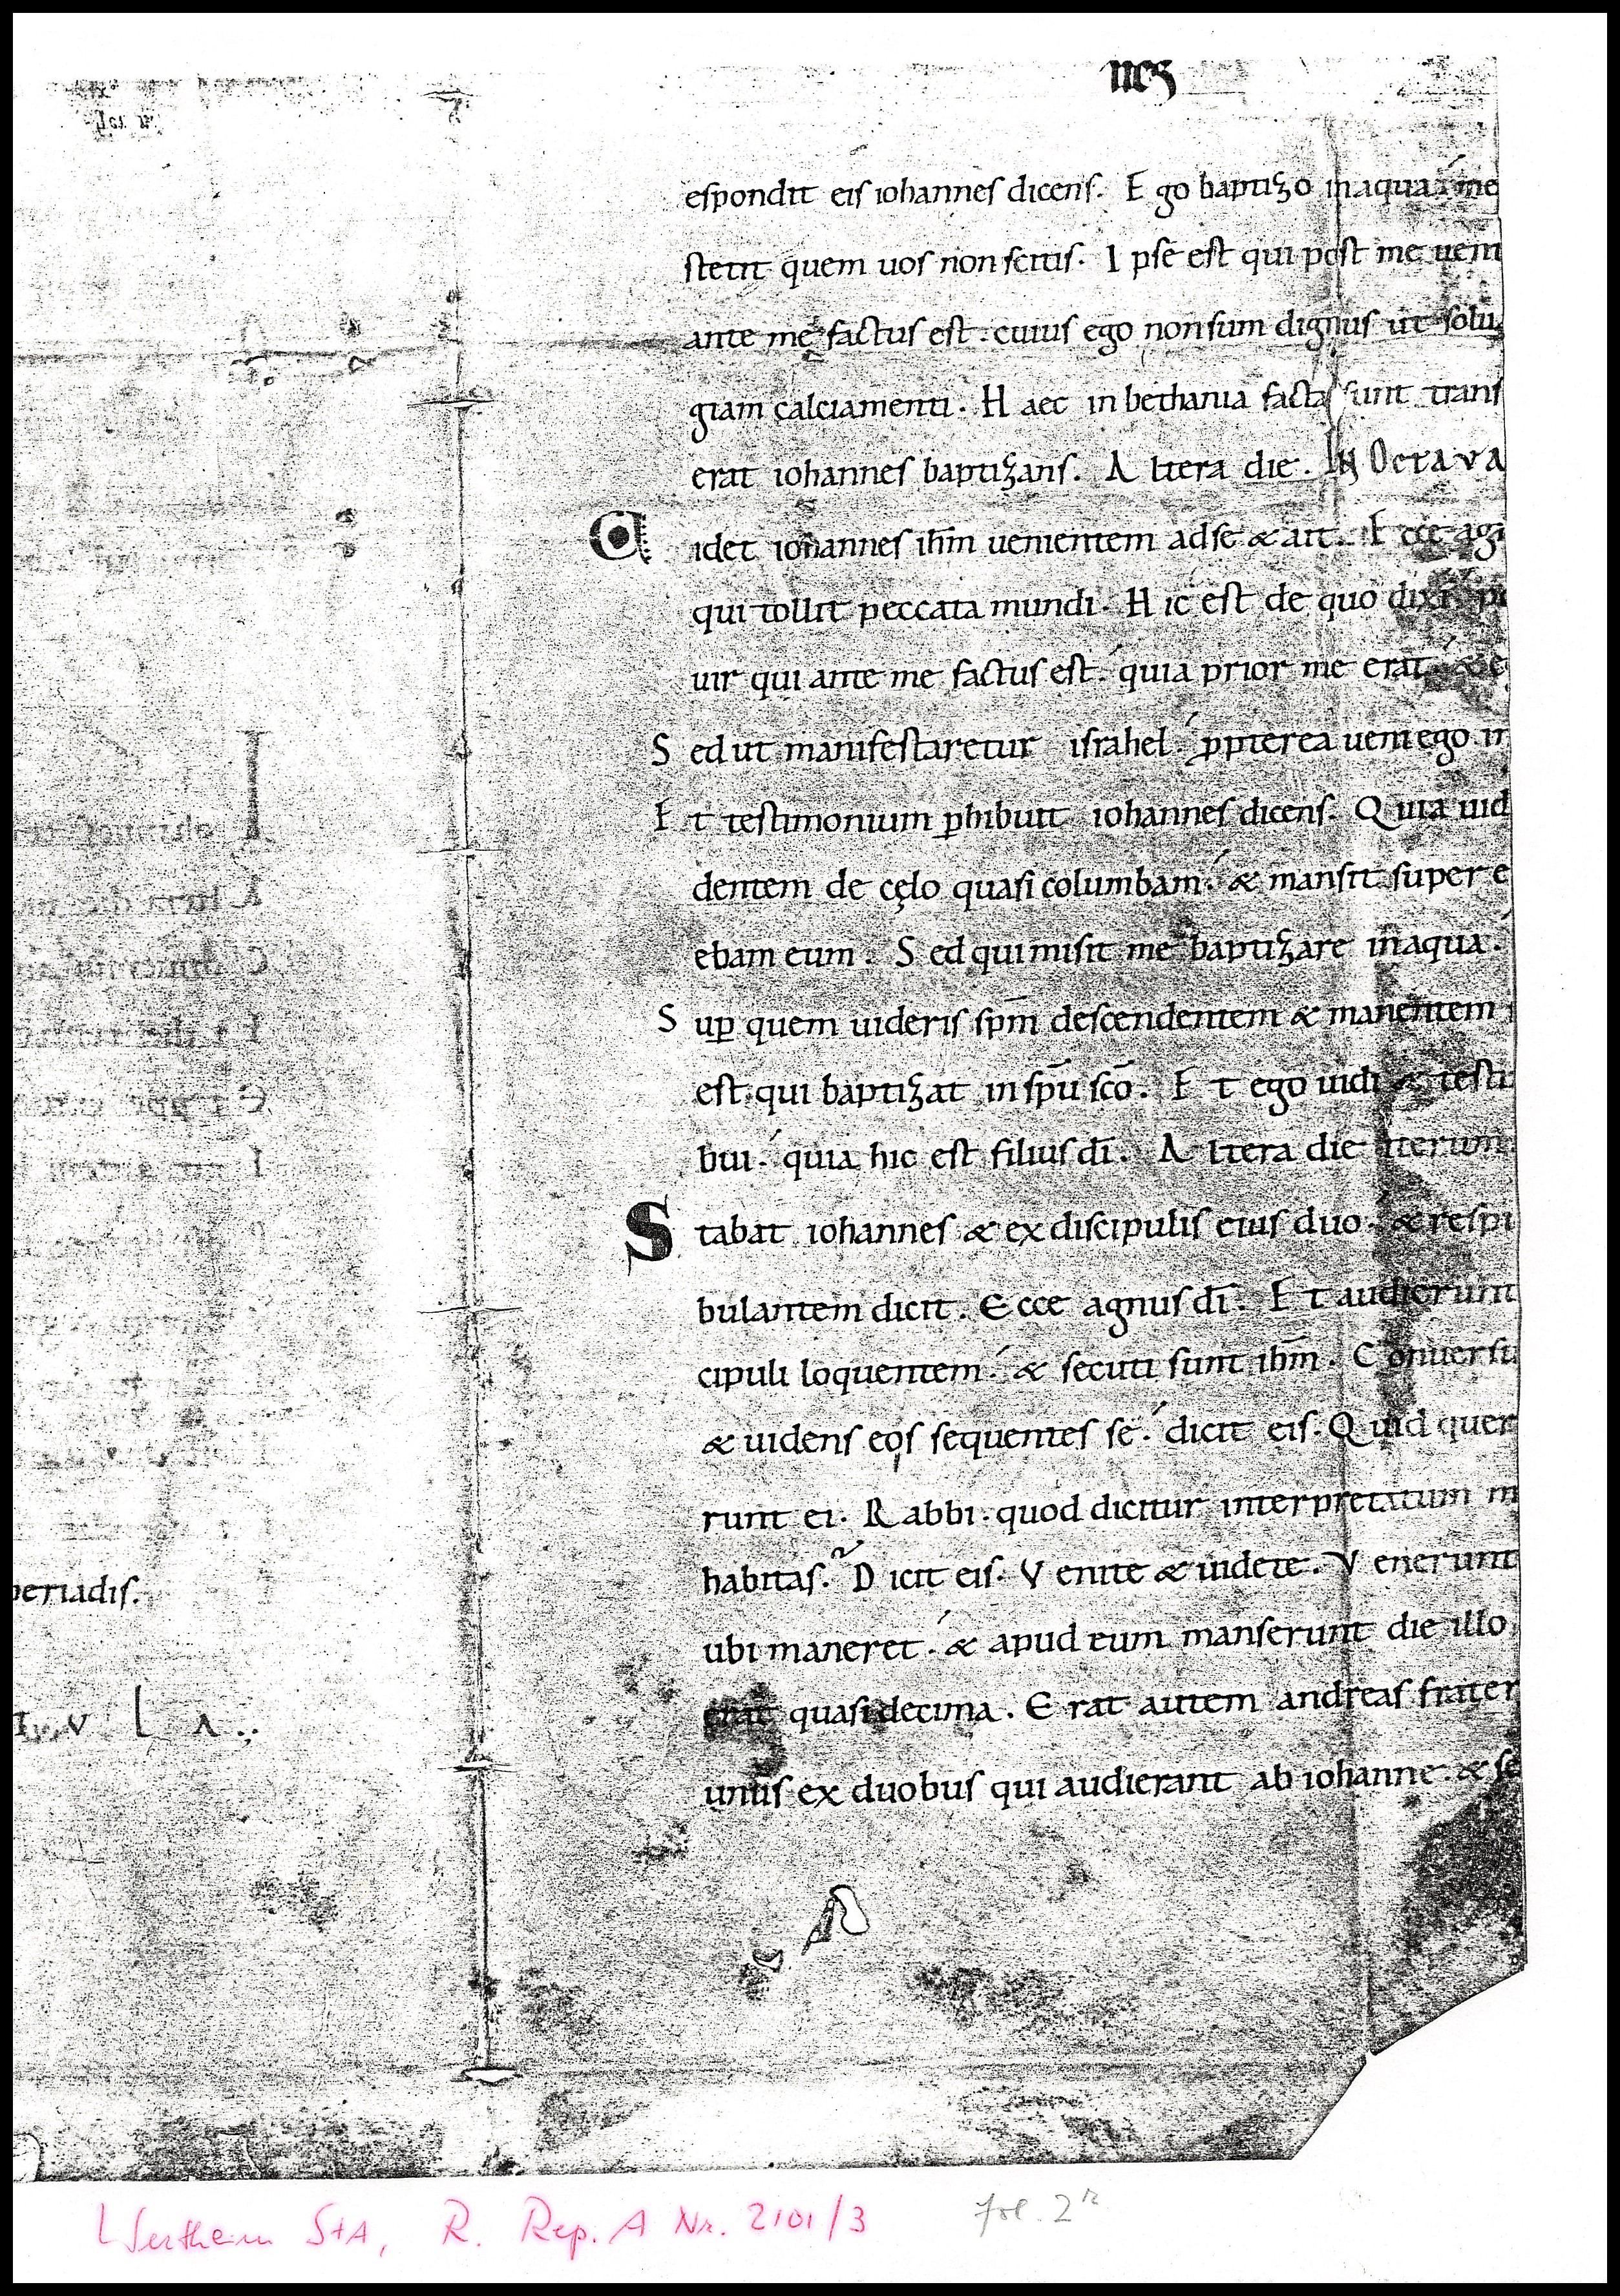 nes
espondit eis iohannes dicens. Ego baptizo in aqua. me
stetit quem uos non scitis. Ipse est qui post me ueni
ante me factus est. cuius ego non sum dignus ut solu
giam calciamenti. Haec in bethania facta sunt trans
erat iohannes baptizans. Altera die. IN OCTAVA
idet iohannes ihm̄ uenientem ad se & ait. Ecce agn
qui tollit peccata mundi. Hic est de quo dixi. po
uir qui ante me factus est. quia prior me erat. & e
Sed ut manifestaretur israhel. ꝓpterea ueni ego in
Et testimonium ꝑhibuit iohannes dicens. Quia uid
dentem de cęlo quasi columbam. & mansit super e
ebam eum. Sed qui misit me baptizare in aqua.
Suꝑ quem uideris spm̄ descendentem & manentem
est qui baptizat in spū scō. Et ego uidi & testi
bui. quia hic est filius dī. Altera die iterum
Stabat iohannes & ex discipulis eius duo. & respi
bulantem dicit. Ecce agnus dī. Et audierunt
cipuli loquentem. & secuti sunt ihm̄. Conuersu
& uidens eos sequentes se. dicit eis. Quid quer
runt ei. Rabbi. quod dicitur interpretatum m
habitas? Dicit eis. Venite & uidete. Venerunt
ubi maneret. & apud eum manserunt die illo
erat quasi decima. Erat autem andreas frater
unus ex duobus qui audierant ab iohanne. & se
periadis.
v l a
Wertheim StA, R. Rep. A Nr. 2101/3
fol. 2r